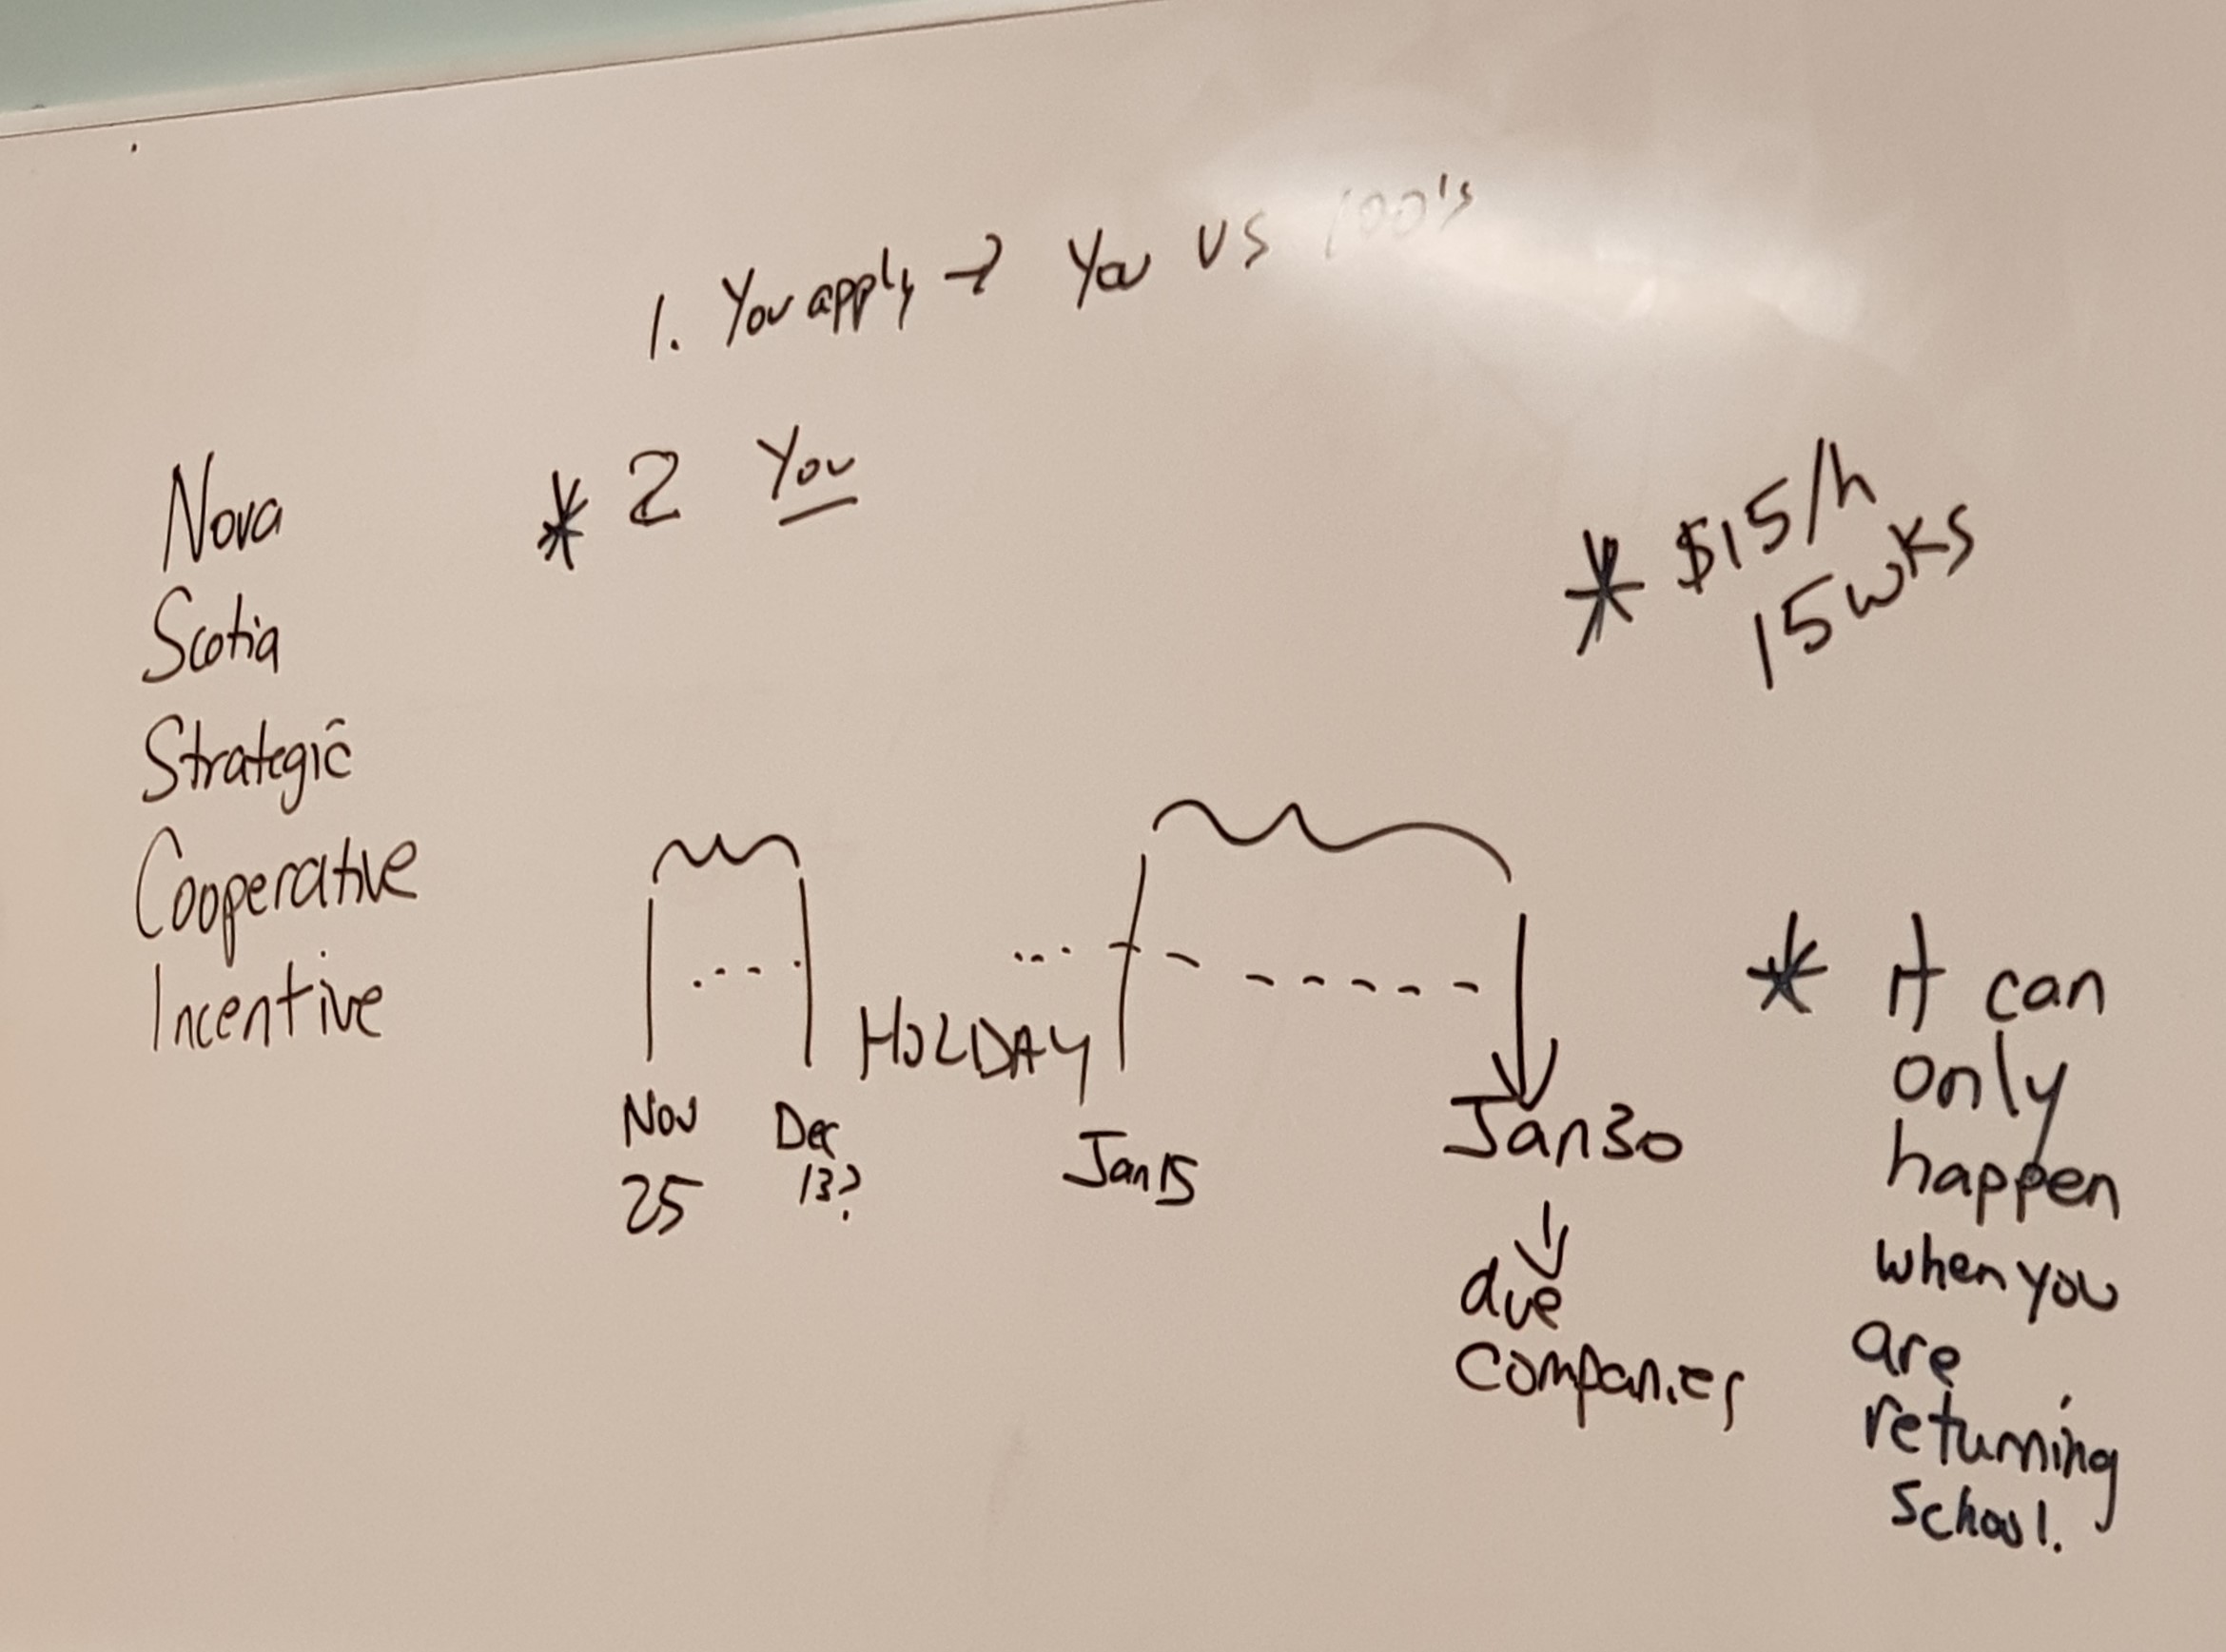 1. You apply → You vs 100's
* 2 You
Nova
Scotia
Strategic
Cooperative
Incentive
* $15/h
15 wks
HOLDAY
Nov
25
Dec
13?
Jan 15
Jan 30
↓
due
companies
* it can
only
happen
when you
are
returning
school.